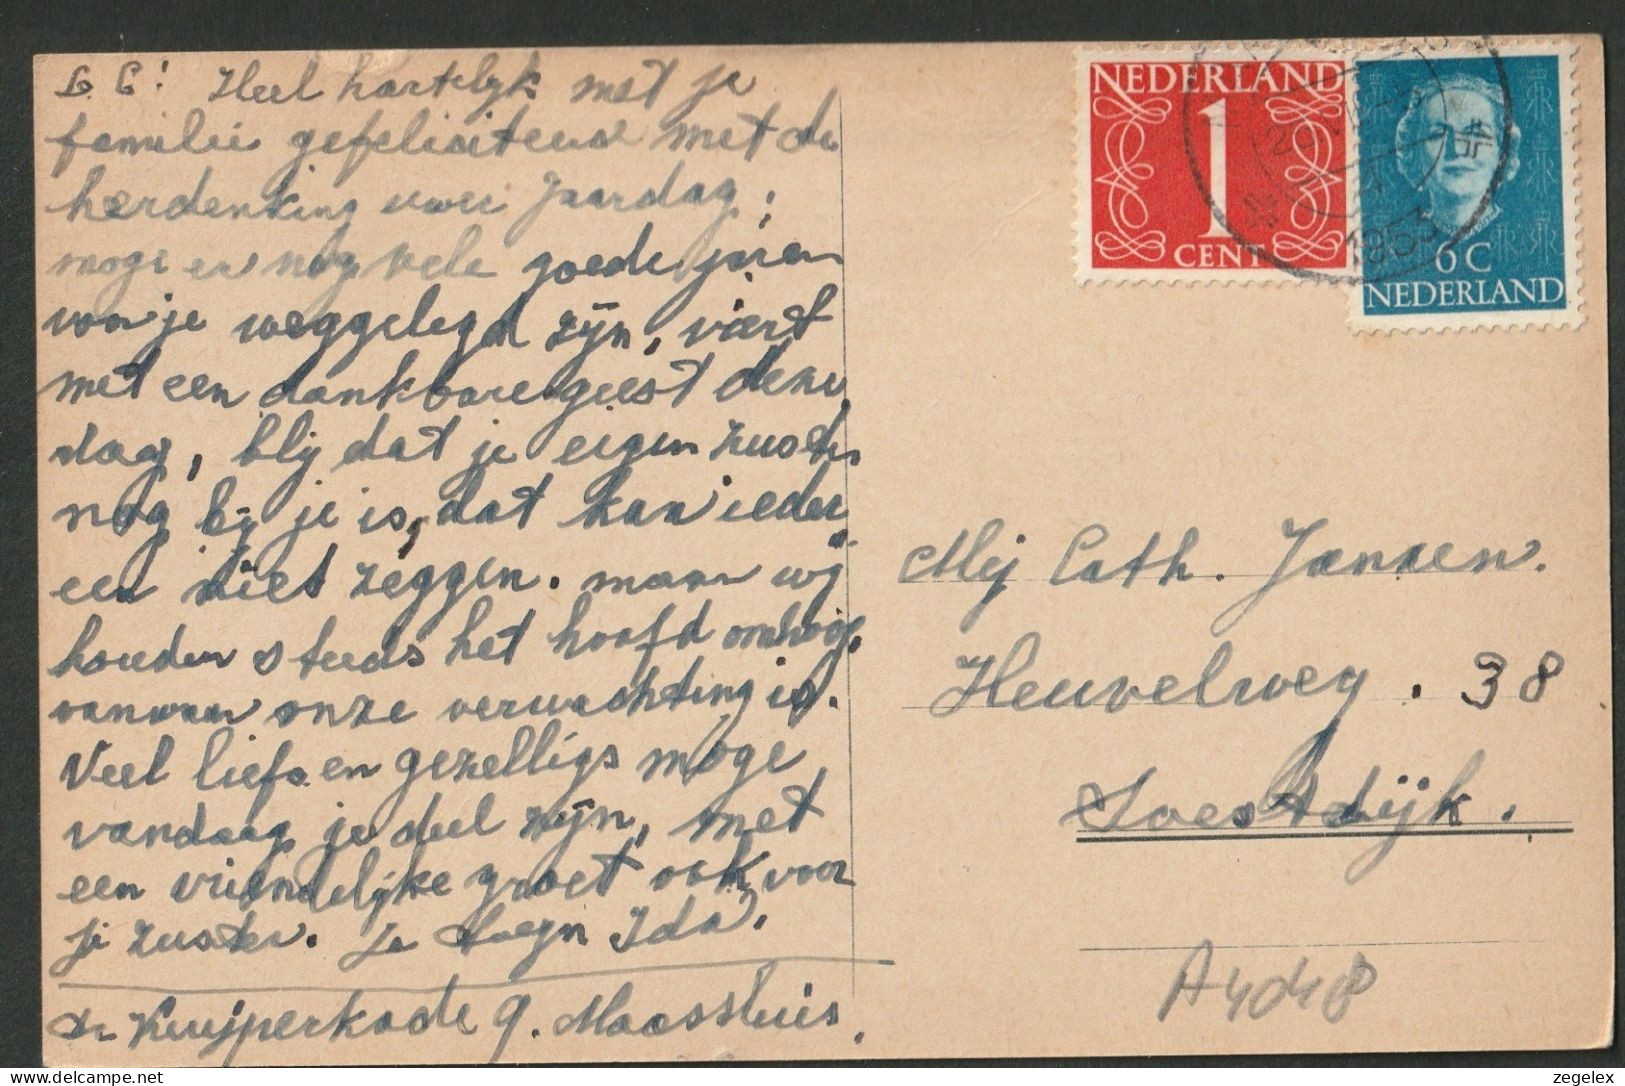 L. C! Heel hartelijk met je
familie gefeliciteerd met de
herdenking uwer Jaardag;
moge er nog vele goede jaren
voor je weggelegd zijn, viert
met een dankbare geest deze
dag, blij dat je eigen zuster
nog bij je is, dat kan ieder
een niet zeggen. maar wij
houden steeds het hoofd omhoog,
vanwaar onze verwachting is.
Veel liefs en gezelligs moge
vandaag je deel zijn, met
een vriendelijke groet ook voor
je zuster. Je Ida.
dr Kuijperkade 9. Maassluis.
NEDERLAND
1
CENT
6 C
NEDERLAND
1953
Mej Cath. Jansen.
Heuvelweg. 38
Soestdijk.
A4048
zegelex
delcampe.net